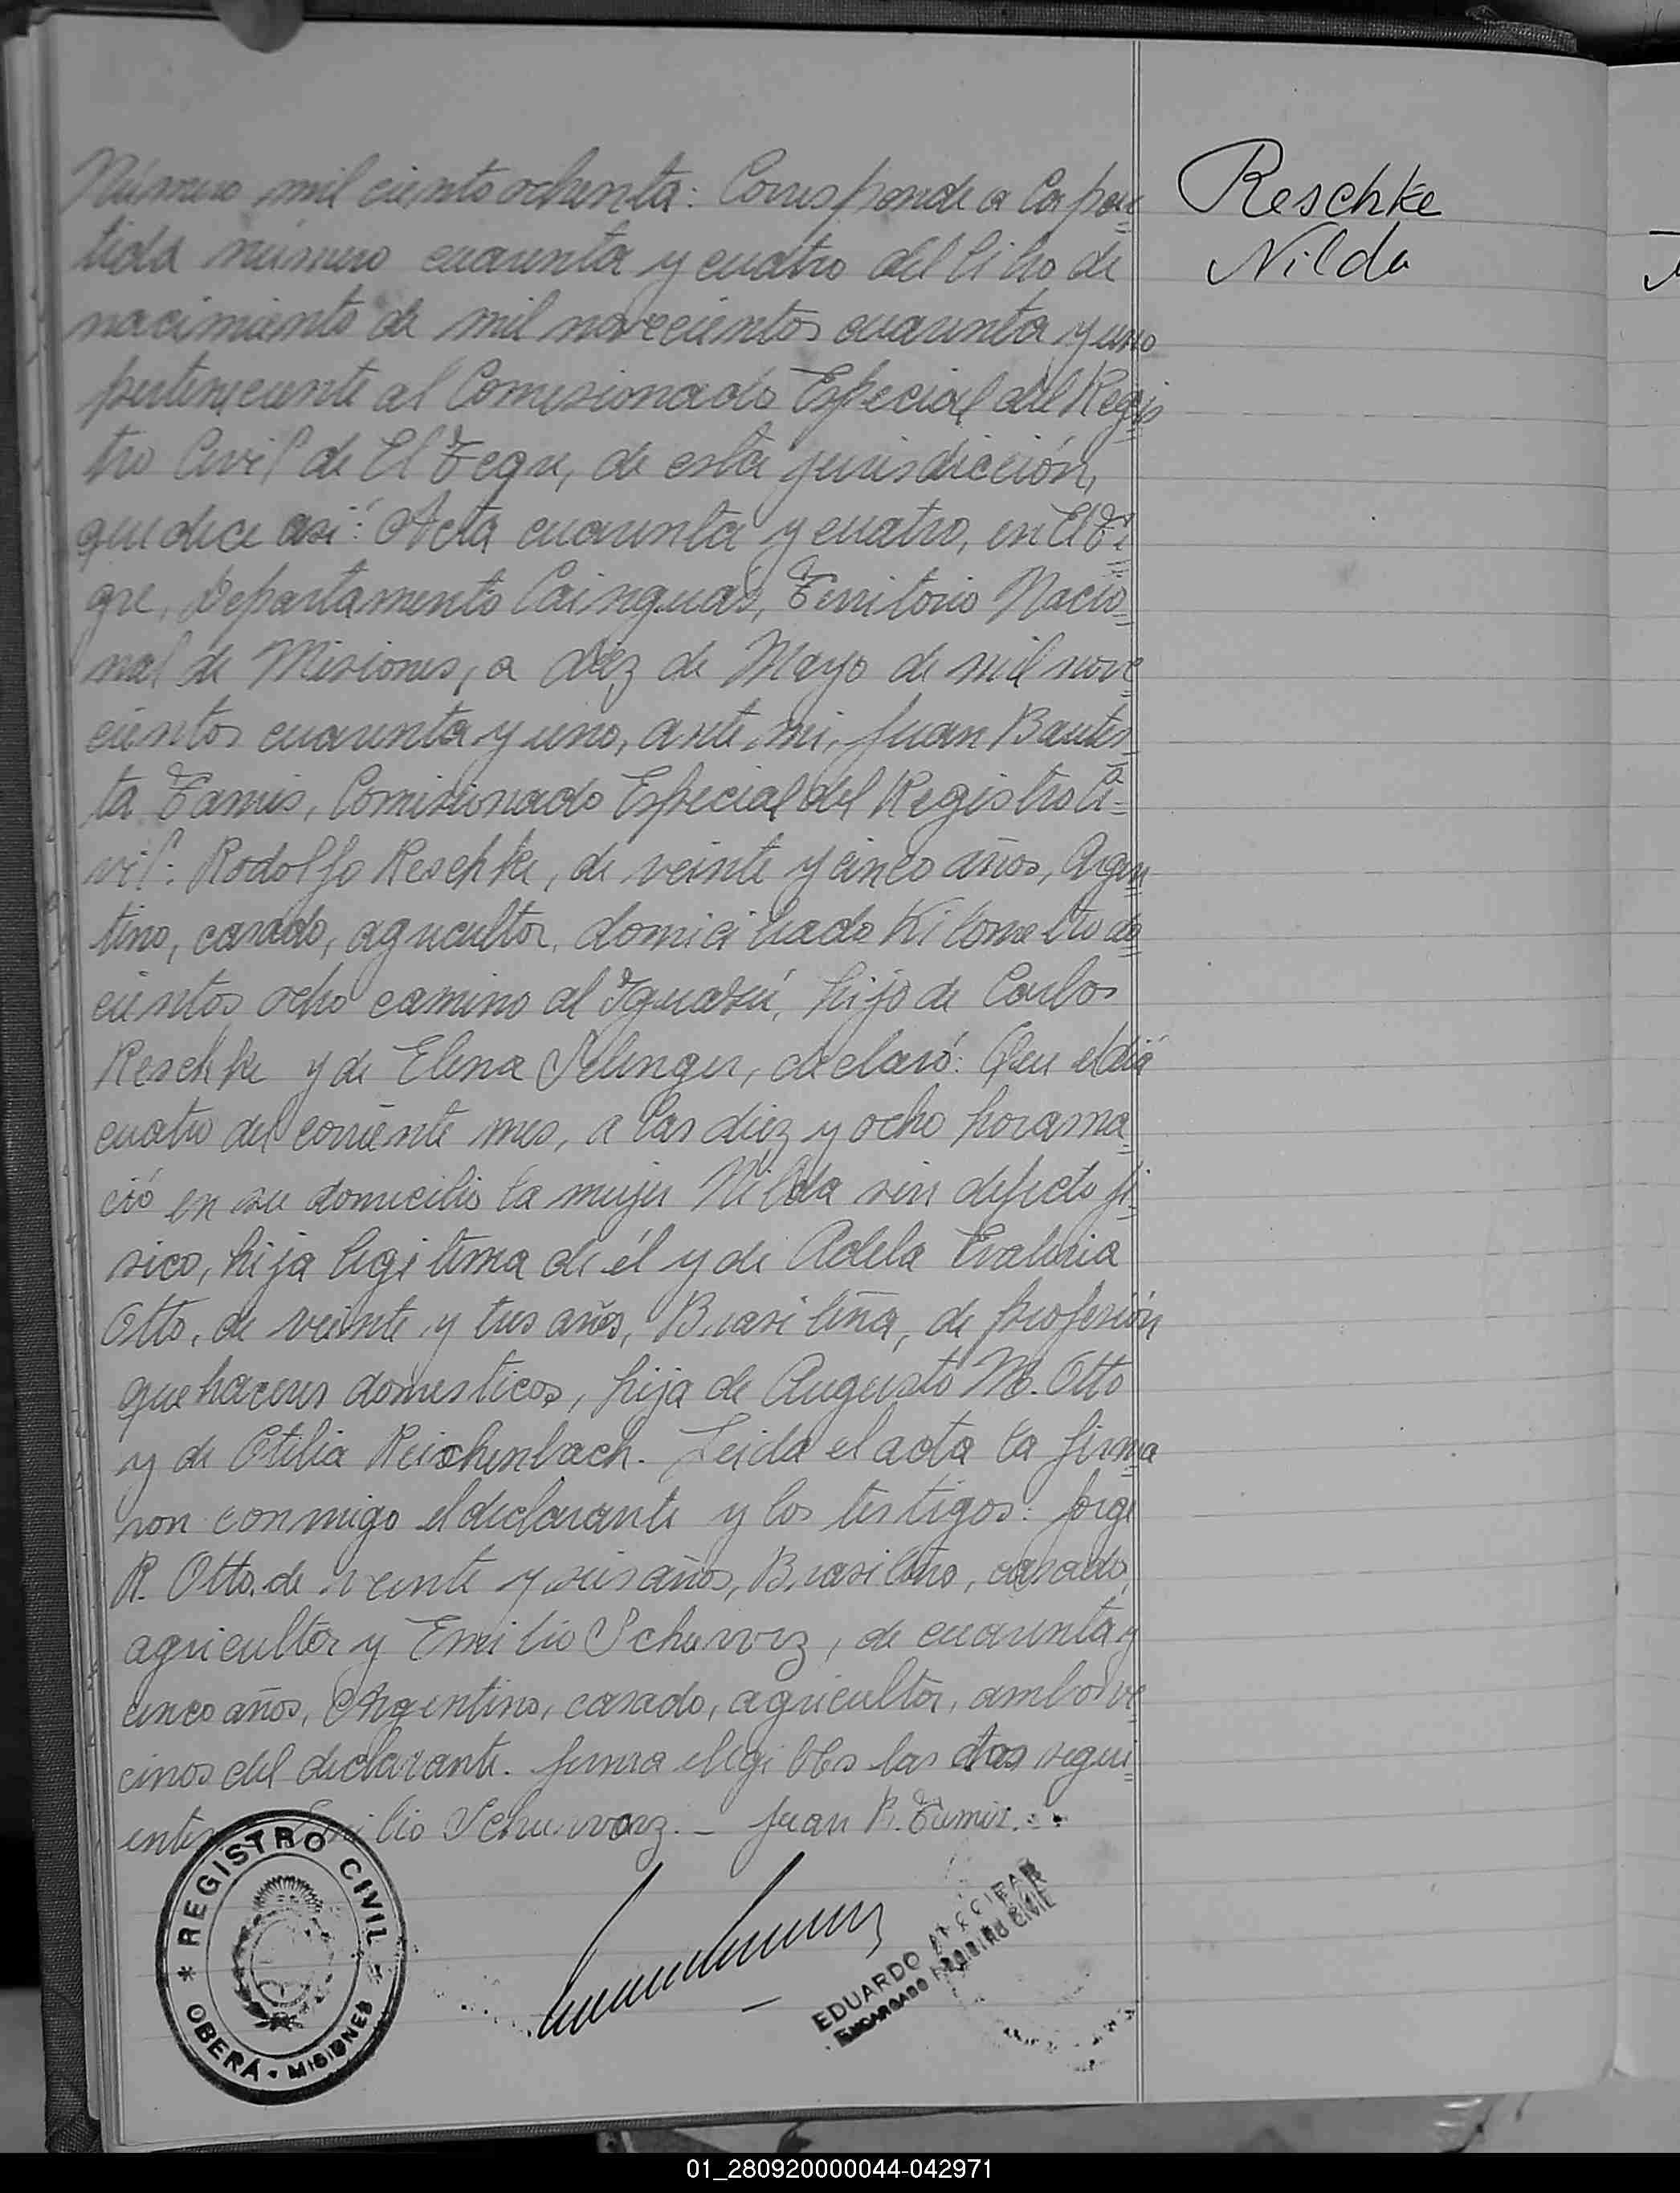 Número mil ciento ochenta: Corresponde a la par=
tida número cuarenta y cuatro del libro de
nacimiento de mil novecientos cuarenta y uno
perteneciente al Comisionado Especial del Regis=
tro Civil de El Tigre, de esta jurisdicción,
que dice asi: Acta cuarenta y cuatro, en El Ti=
gre, Departamento Cainguás, Territorio Nacio=
nal de Misiones, a diez de Mayo de mil nove=
cientos cuarenta y uno, ante mi, Juan Bautis=
ta, Comisionado Especial del Registro Ci=
vil: Rodolfo Reschke, de veinte y cinco años, Argen=
tino, casado, agricultor, domiciliado Kilometro dos=
cientos ocho camino al Iguazú, hijo de Carlos
Reschke y de Elena Selinger, declaró: Que el día
cuatro del corriente mes, a las diez y ocho horas na=
ció en su domicilio la mujer Nilda sin defecto fi=
sico, hija legitima de él y de Adela
Otto, de veinte y tres años, Brasileña, de profesión
quehaceres domesticos, hija de Augusto M. Otto
y de Otilia Reichenbach. Leida el acta la firma=
ron conmigo el declarante y los testigos: Jorge
R. Otto de veinte y seis años, Brasileño, casado,
agricultor y Emilio, de cuarenta y
cinco años, Argentino, casado, agricultor, ambos ve=
cinos del declarante. las dos sigui=
entes Juan B.
Reschke
Nilda
REGISTRO CIVIL
* OBERÁ - MISIONES *
EDUARDO
ENCARGADO REGISTRO CIVIL
01_280920000044-042971